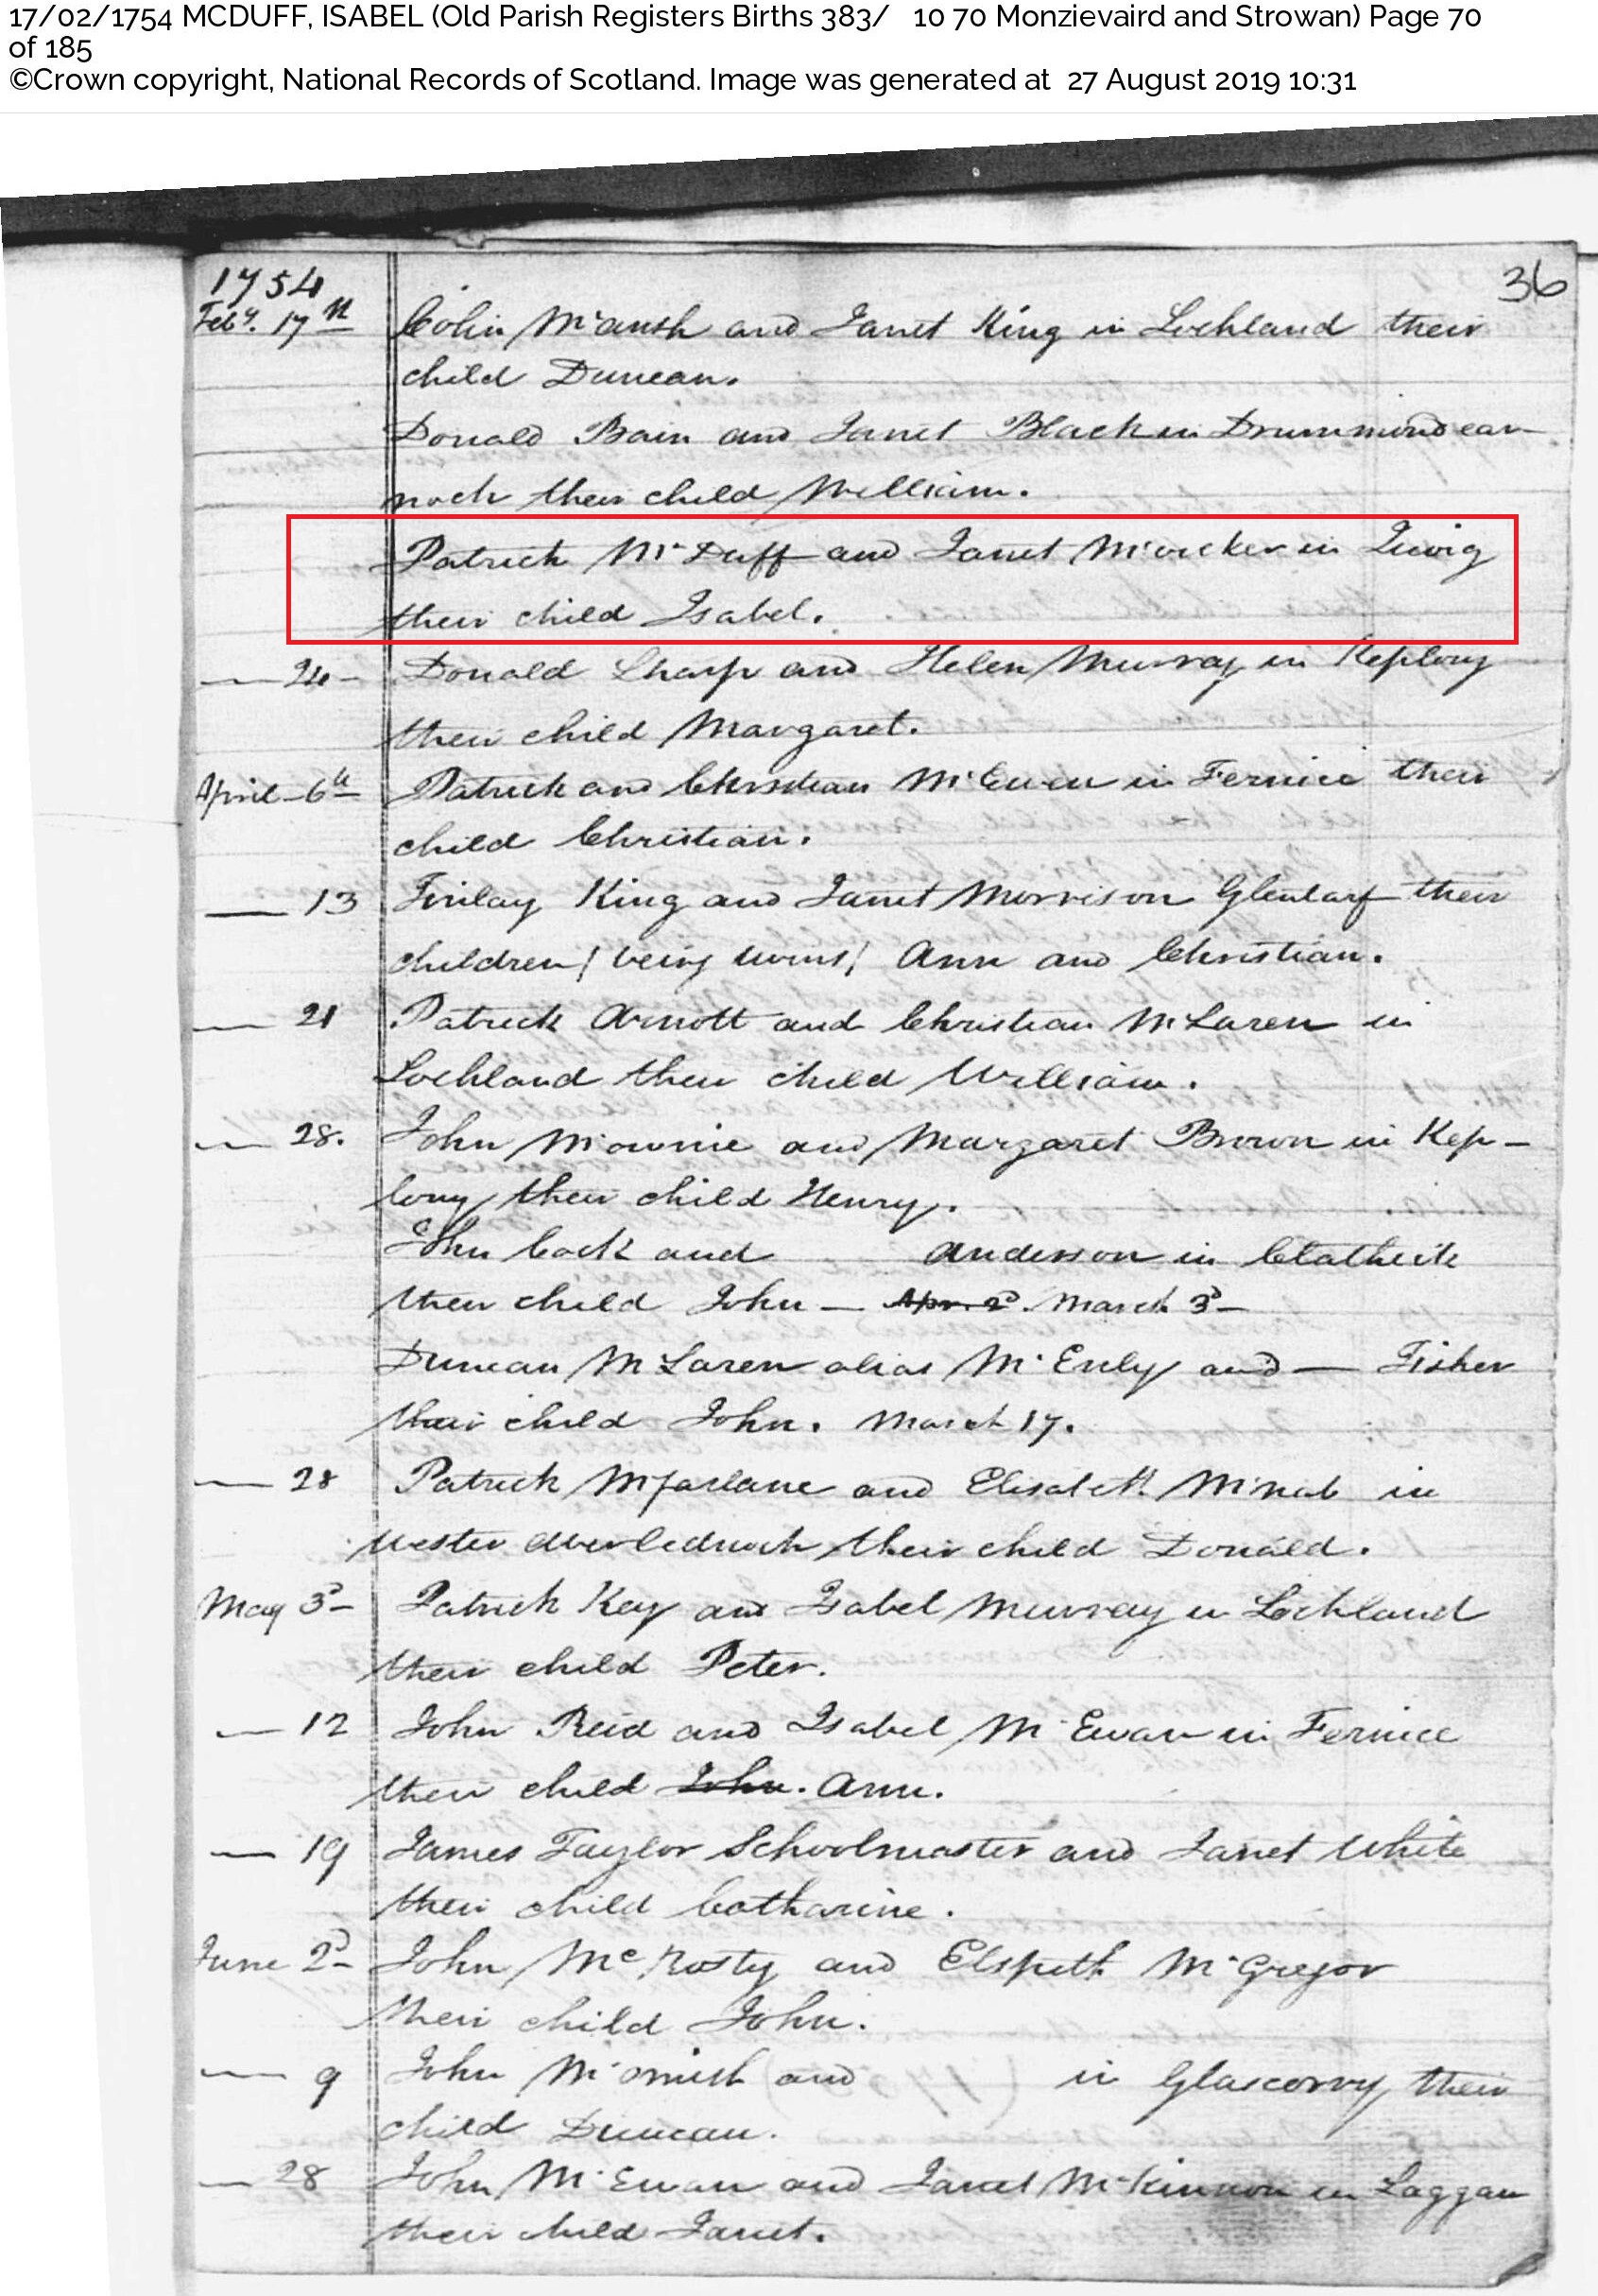 17/02/1754 MCDUFF, ISABEL (Old Parish Registers Births 383/ 10 70 Monzievaird and Strowan) Page 70
of 185
©Crown copyright, National Records of Scotland. Image was generated at 27 August 2019 10:31
36
1754
Feby. 17th Colin McAnsh and Janet King in Lochland their
child Duncan.
Donald Bain and Janet Black in Drummondear-
noch their child William.
Patrick McDuff and Janet in
their child Isabel.
— 24 – Donald Sharp and Helen Murray in Keplong
their child Margaret.
April – 6th Patrick and Christian McEwen in Fernice their
child Christian.
— 13 Finlay King and Janet Morrison Glentarf their
children / being twins / Ann and Christian.
— 21 Patrick Arnott and Christian McLaren in
Lochland their child William.
— 28. John and Margaret Brown in Kep-
long their child Henry.
John Cock and Anderson in Clathick
their child John — Apr. 2d. March 3d –
Duncan McLaren alias and — Fisher
their child John. March 17.
— 28 Patrick Mcfarlane and Elisabeth McNab in
Wester their child Donald.
May 3d – Patrick Kay and Isabel Murray in Lochland
their child Peter.
— 12 John Reid and Isabel McEwan in Fernice
their child John. Ann.
— 19 James Taylor Schoolmaster and Janet White
their child Catharine.
June 2d – John McRosty and Elspeth McGregor
their child John.
— 9 John and in Glascorry their
child Duncan.
— 28 John McEwan and Janet McKinnon in Laggan
their child Janet.